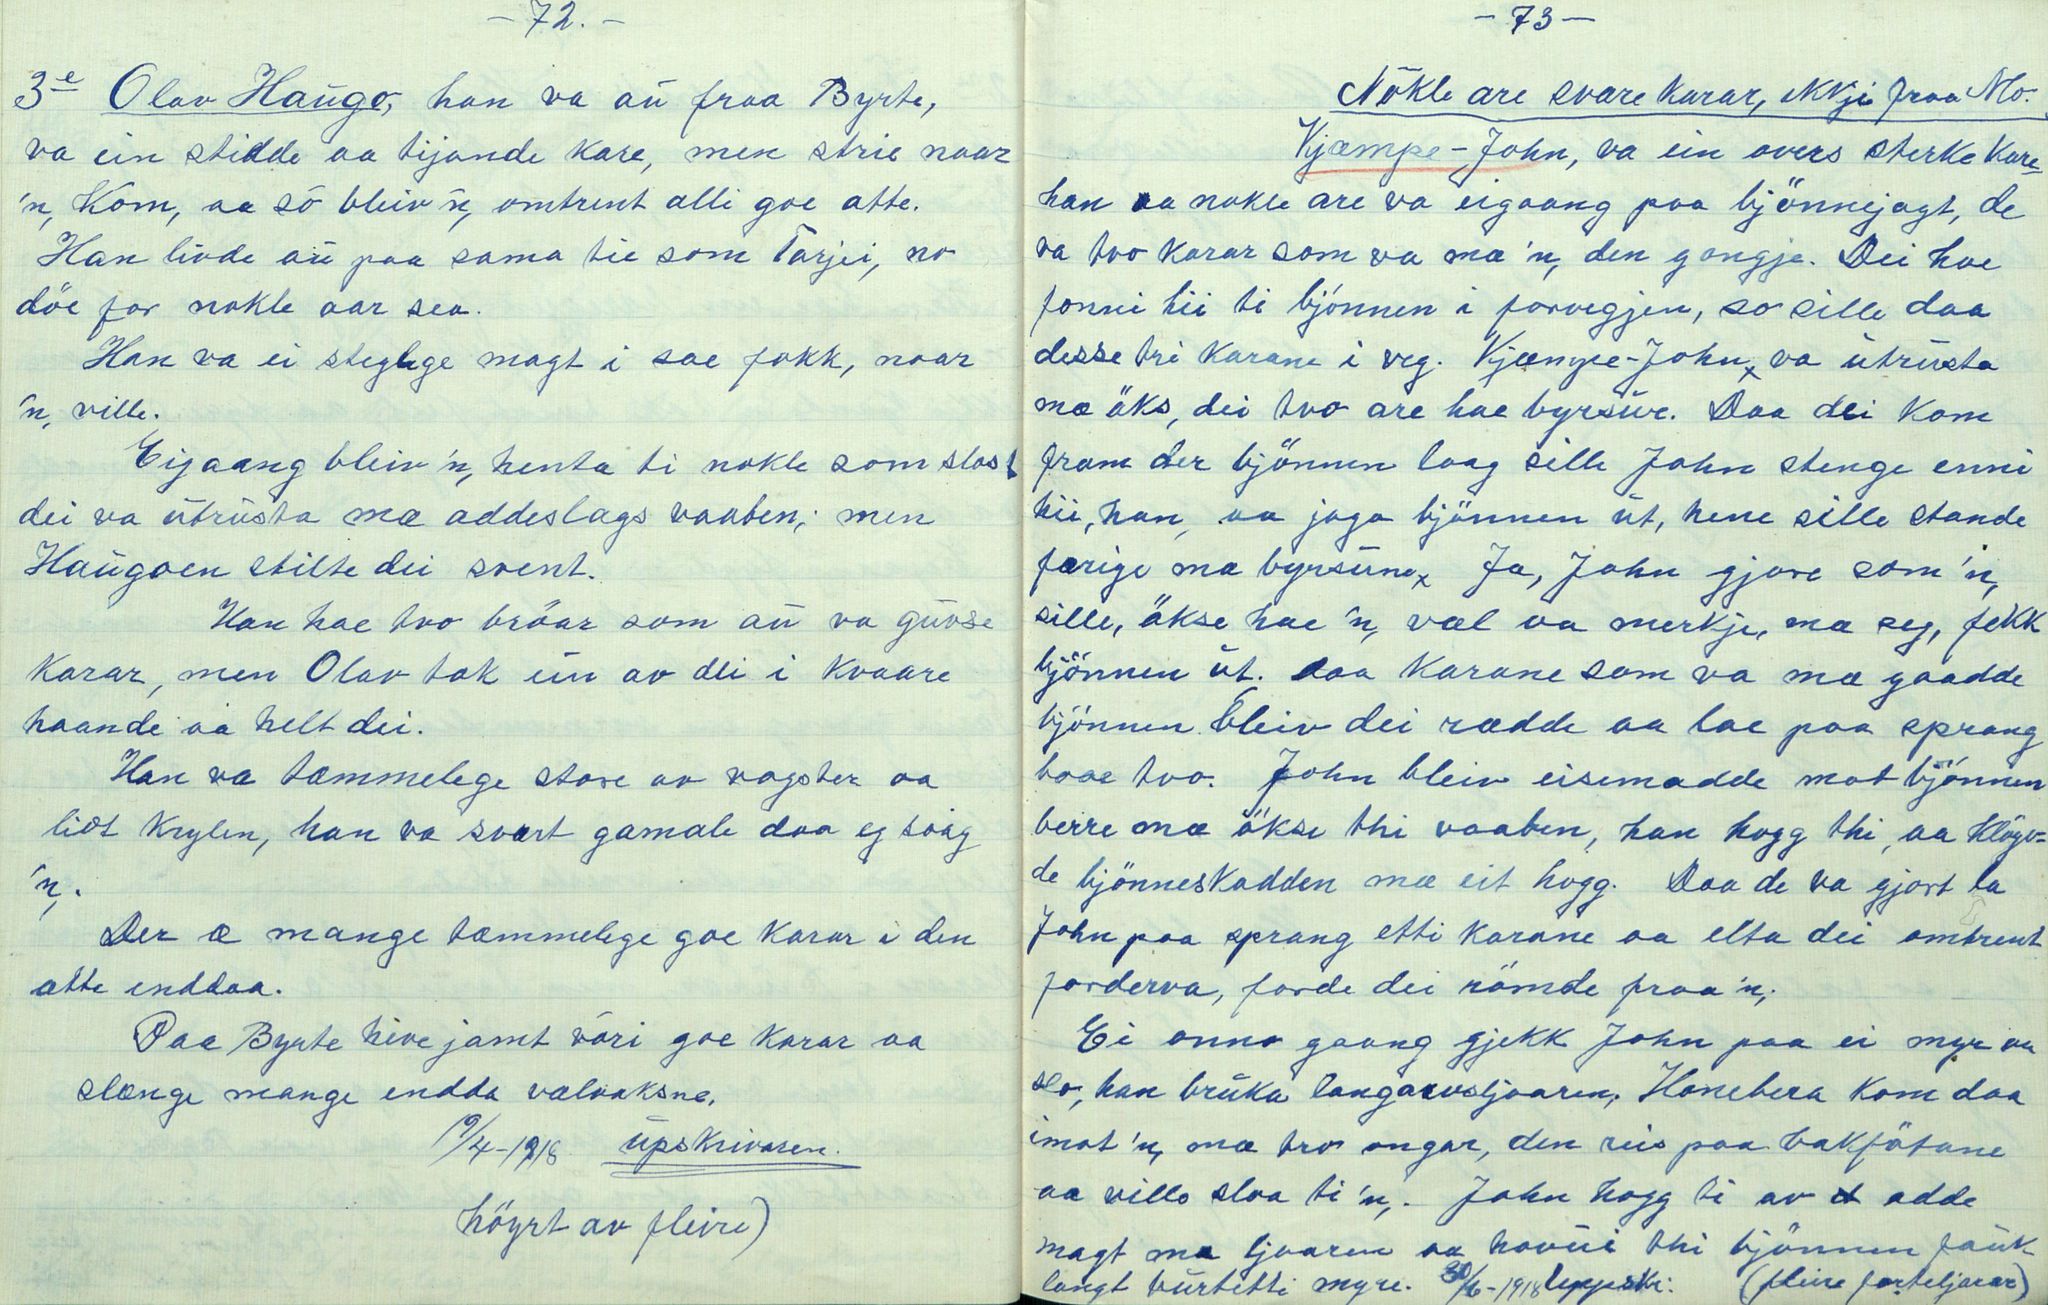 - 72. -
3e Olav Haugo, han va aü fraa Byrte,
va ein stidde aa tijande kare, men strie naar
'n, kom, aa so bleiv 'n, omtrent alli goe atte.
Han livde aü paa sama tie som Tarjei, no
döe for nokle aar sea.
Han va ei steglege magt i sae fokk, naar
'n, ville.
Eigaang bleiv 'n, henta ti nokle som slost
dei va ütrüsta mæ addeslags vaaben; men
Haügoen stilte dei svent.
Han hae tvo bröar som aü va güvse
karar, men Olav tok ein av dei i kvaare
haande aa helt dei.
Han va tæmmelege store av vagster aa
liet krylen, han va svært gamale daa eg soåg
'n,.
Der æ mange tæmmelege goe karar i den
atte enddaa.
Paa Byrte heve jamt vöri goe karar aa
slænge mange endda valvaksne.
10/4-1918 üpskrivaren.
höyrt av fleire)
- 73 -
Nökle are svare karar, ikkji fraa Mo.
Kjæmpe-John, va ein overs sterke kare
han aa nokle are va eigaang paa bjönnejagt, de
va tvo karar som va mæ 'n, den gongje. Dei hae
fonni hii ti bjönnen i forvegjen, so sille daa
desse tri karane i veg. Kjæmpe-John, va ütrüsta
mæ öks, dei tvo are hae byrsür. Daa dei kom
fram der bjönnen laag sille John stenge enni
hii, han, aa jaga bjönnen üt, hene sille stande
færige mæ byrsüne, Ja, John gjore som 'n,
sille, ökse hae 'n, væl aa merkje, mæ seg, fekk
bjönnen üt. daa karane som va mæ gaadde
bjönnen bleiv dei rædde aa lae paa sprang
baae tvo. John bleiv eisemadde mot bjönnen
berre mæ ökse thi vaaben, han hogg thi, aa klöyv-
de bjönneskadden mæ eit hogg. Daa de va gjort la
John paa sprang etti karane aa elta dei omtrent
forderva, forde dei römde fraa 'n,
Ei onno gaang gjekk John paa ei myr aa
slo, han brüka langorvsljaaren, Honebera kom daa
imot 'n, mæ tvo ongar, den reis paa bakfötane
aa ville slaa ti 'n,. John hogg ti av adde
magt mæ ljaaren aa hovüi thi bjönnen fauk
langt bürtetti myre. 30/6-1918 uppskr: (fleire forteljarar)